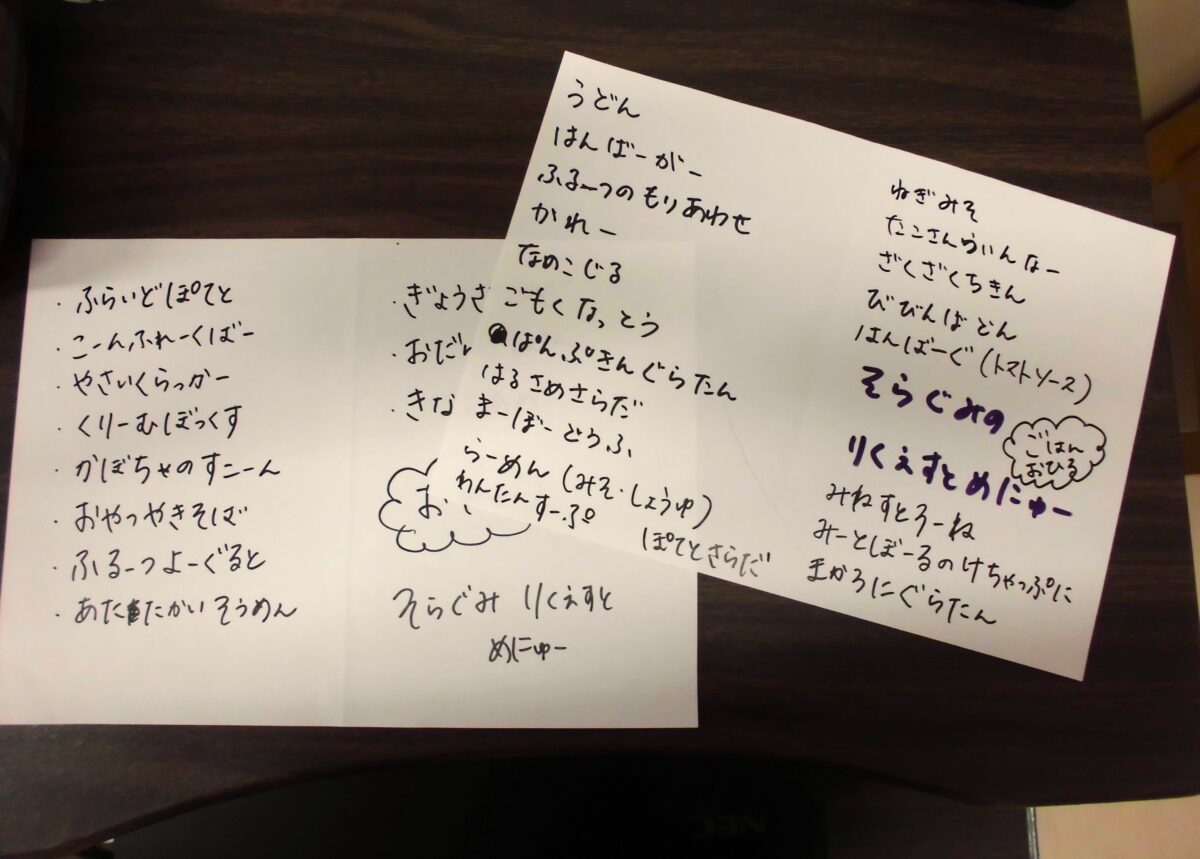 ・ふらいどぽてと
・こーんふれーくばー
・やさいくらっかー
・くりーむぼっくす
・かぼちゃのすこーん
・おやつやきそば
・ふるーつよーぐると
・あたたかいそうめん
・ぎょうざ
・おだ
・きな
お
そらぐみ りくえすと
めにゅー
うどん
はんばーがー
ふるーつのもりあわせ
かれー
なめこじる
ごもくなっとう
ぱんぷきんぐらたん
はるさめさらだ
まーぼーどうふ
らーめん(みそ・しょうゆ)
わんたんすーぷ
ぽてとさらだ
ねぎみそ
たこさんういんなー
ざくざくちきん
びびんばどん
はんばーぐ(トマトソース)
そらぐみの
りくえすとめにゅー
ごはん
おひる
みねすとろーね
みーとぼーるのけちゃっぷに
まかろにぐらたん
NEC